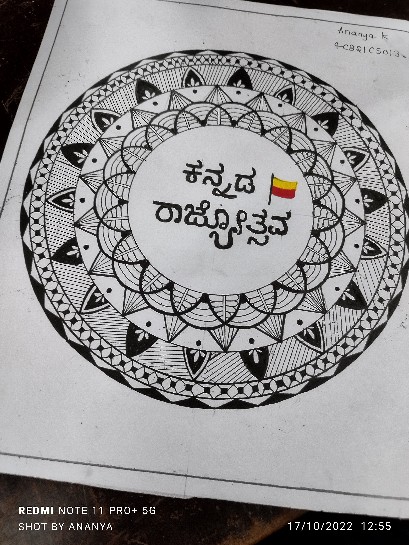 Ananya K
ಕನ್ನಡ
ರಾಜ್ಯೋತ್ಸವ
REDMI NOTE 11 PRO+ 5G
SHOT BY ANANYA
17/10/2022 12:55